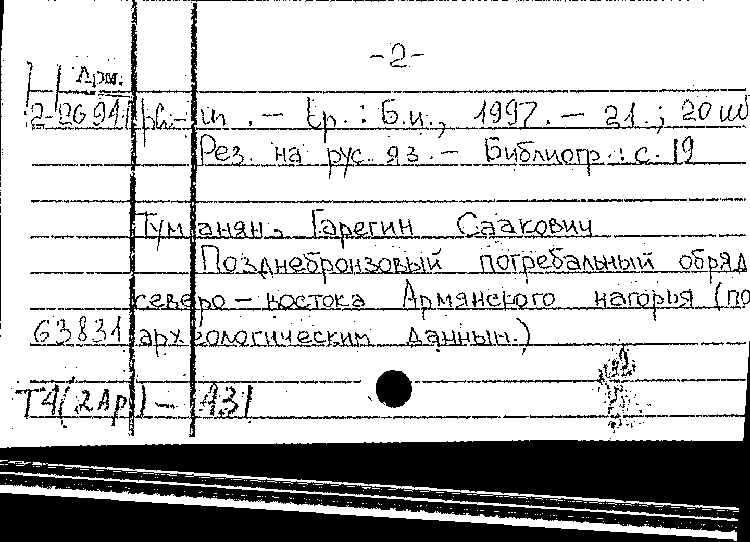 -2-
Арм.
2-2694 թի-ւն. — Եր. : Б.и., 1997. — 21. ; 20
Рез. на рус. яз. — Библиогр.: с. 19
Туманян, Гарегин Саакович
Позднебронзовый погребальный обряд
северо-востока Армянского нагорья (по
63831 археологическим данным.)
Т4(2Ар) — 431